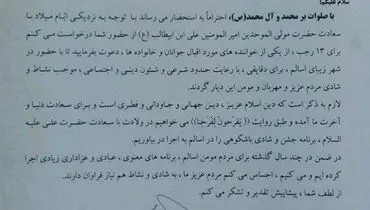 سلام علیکم؛
با صلوات بر محمد و آل محمد(ص)، احتراماً به استحضار می رساند با توجه به نزدیکی ایّام میلاد با
سعادت حضرت مولی الموحدین امیر المومنین علی ابن ابیطالب (ع) از حضور شما درخواست می کنم
برای ۱۳ رجب ، از یکی از خواننده های مورد اقبال جوانان و خانواده ها ، دعوت بفرمایید تا با حضور در
شهر زیبای اسالم ، برای دقایقی ، با رعایت حدود شرعی و شئون دینی و اجتماعی ، موجب نشاط و
شادی مردم عزیز و مهربان و مومن این دیار گردند.
لازم به ذکر است که دین اسلام عزیز ، دین جهانی و جاودانی و فطری است و برای سعادت دنیا و
آخرت ما آمده و طبق روایت (یَفرَحونَ لِفَرَحِنا) می خواهیم در ولادت با سعادت حضرت علی علیه
السلام ، برنامه جشن و شادی باشکوهی را در اسالم به اجرا در بیاوریم.
در ضمن در چند سال گذشته برای مردم مومن اسالم ، برنامه های معنوی ، عبادی و عزاداری زیادی اجرا
کرده ایم و می کنیم ، احساس می کنم مردم عزیز ما ، به شادی و نشاط هم نیاز فراوان دارند.
از لطف شما ، پیشاپیش تقدیر و تشکر می کنم.